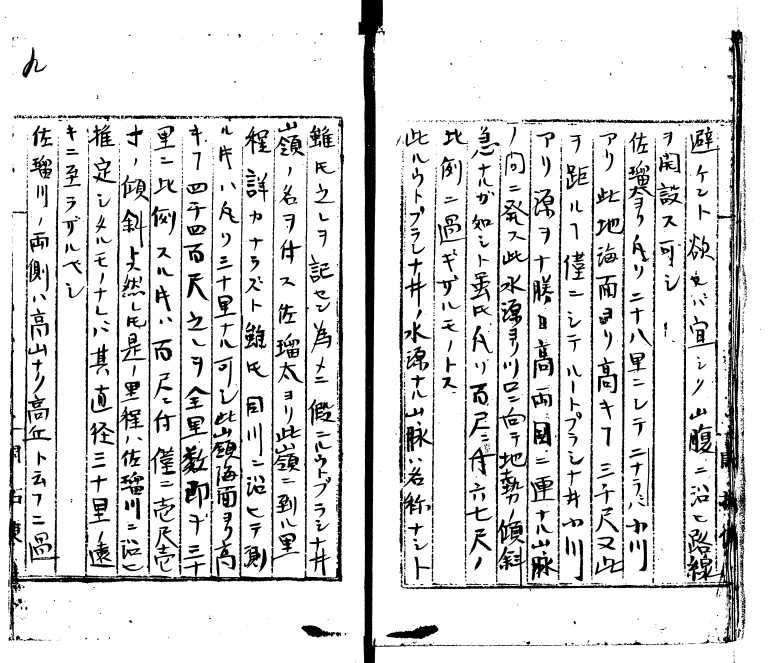 避ケント欲セバ宜シク山腹ニ沿ヒ路線
ヲ開設ス可シ
佐瑠太ヨリ凡ソ二十八里ニシテニナラバ小川
アリ此地海面ヨリ高キ⼁三千尺又此
ヲ距ルヿ僅ニシテルートプラシナ井小川
アリ源ヲ十勝日高両国ニ連ナル山脈
ノ間ニ発ス此水源ヨリ川口ニ向テ地勢ノ傾斜
急ナルガ如シト虽𪜈凡ソ百尺ニ付六七尺ノ
比例ニ過ギザルモノトス
此ルウトプラシナ井ノ水源ナル山脈ハ名称ナシト
九
雖𪜈之レヲ記セン為メニ假ニルウトプラシナ井
山嶺ノ名ヲ付ス佐瑠太ヨリ此山嶺ニ到ル里
程詳カナラズト雖𪜈同川ニ沿ヒテ測
ル片ハ凡ソ三十里ナル可シ此山嶺海面ヨリ高
キヿ四千四百尺之レヲ全里数即チ三十
里ニ比例スル片ハ百尺ニ付僅ニ壱尺壱
寸ノ傾斜ト然レ𪜈是ノ里程ハ佐瑠川ニ沿ヒ
推定シタルモノナレバ其直径三十里ノ遠
キニ至ラザルベシ
佐瑠川ノ両側ハ高山ナク高丘ト云フニ過